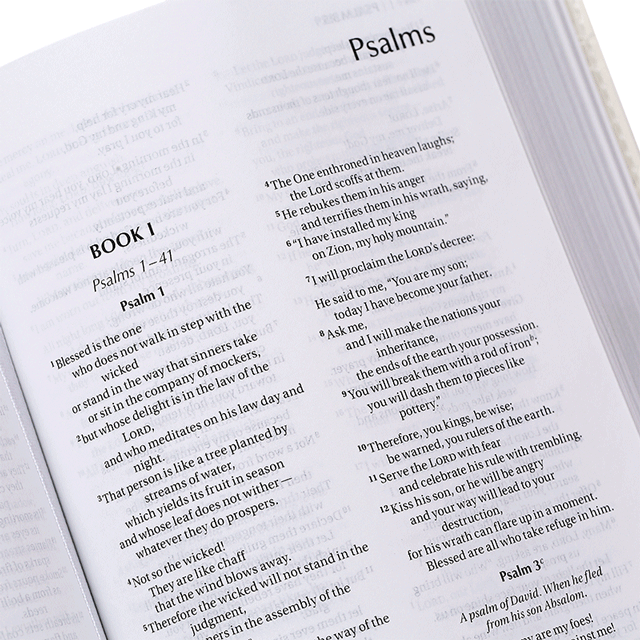 Psalms
BOOK I
Psalms 1–41
Psalm 1
1 Blessed is the one
who does not walk in step with the
wicked
or stand in the way that sinners take
or sit in the company of mockers,
2 but whose delight is in the law of the
LORD,
and who meditates on his law day and
night.
3 That person is like a tree planted by
streams of water,
which yields its fruit in season
and whose leaf does not wither—
whatever they do prospers.
4 Not so the wicked!
They are like chaff
that the wind blows away.
5 Therefore the wicked will not stand in the
judgment,
in the assembly of the
the way of the
4 The One enthroned in heaven laughs;
the Lord scoffs at them.
5 He rebukes them in his anger
and terrifies them in his wrath, saying,
6 “I have installed my king
on Zion, my holy mountain.”
7 I will proclaim the LORD’s decree:
He said to me, “You are my son;
today I have become your father.
8 Ask me,
and I will make the nations your
inheritance,
the ends of the earth your possession.
9 You will break them with a rod of iron b;
you will dash them to pieces like
pottery.”
10 Therefore, you kings, be wise;
be warned, you rulers of the earth.
11 Serve the LORD with fear
and celebrate his rule with trembling.
12 Kiss his son, or he will be angry
and your way will lead to your
destruction,
for his wrath can flare up in a moment.
Blessed are all who take refuge in him.
Psalm 3 c
A psalm of David. When he fled
from his son Absalom.
many are my foes!
me!